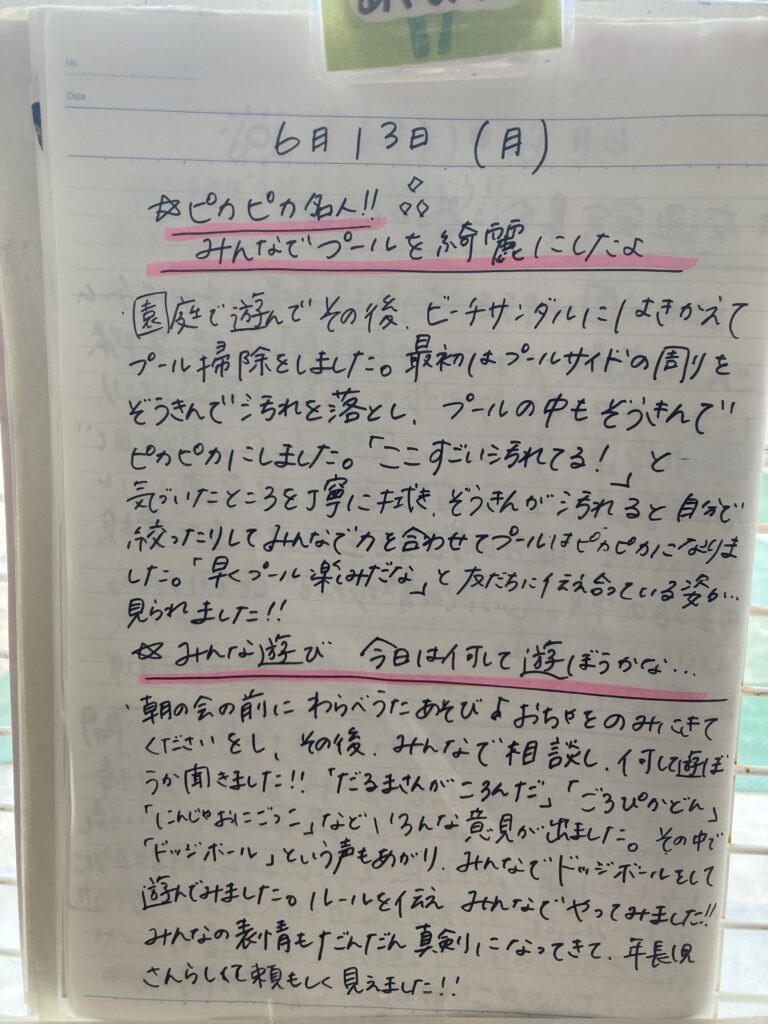 No.
Date
6月13日(月)
☆ピカピカ名人!!
みんなでプールを綺麗にしたよ
・園庭で遊んでその後、ビーチサンダルにはきかえて
プール掃除をしました。最初はプールサイドの周りを
ぞうきんで汚れを落とし、プールの中もぞうきんで
ピカピカにしました。「ここすごい汚れてる!」と
気づいたところを丁寧に拭き、ぞうきんが汚れると自分で
絞ったりしてみんなで力を合わせてプールはピカピカになりま
した。「早くプール楽しみだな」と友だちに伝え合っている姿が…
見られました!!
☆みんな遊び 今日は何して遊ぼうかな…
・朝の会の前にわらべうたあそび♪おちゃをのみにきて
くださいをし、その後、みんなで相談し、何して遊ぼ
うか聞きました!!「だるまさんがころんだ」「ごろぴかどん」
「にんじゃおにごっこ」などいろんな意見が出ました。その中で
「ドッジボール」という声もあがり、みんなでドッジボールをして
遊んでみました。ルールを伝え みんなでやってみました!!
みんなの表情もだんだん真剣になってきて、年長児
さんらしくて頼もしく見えました!!